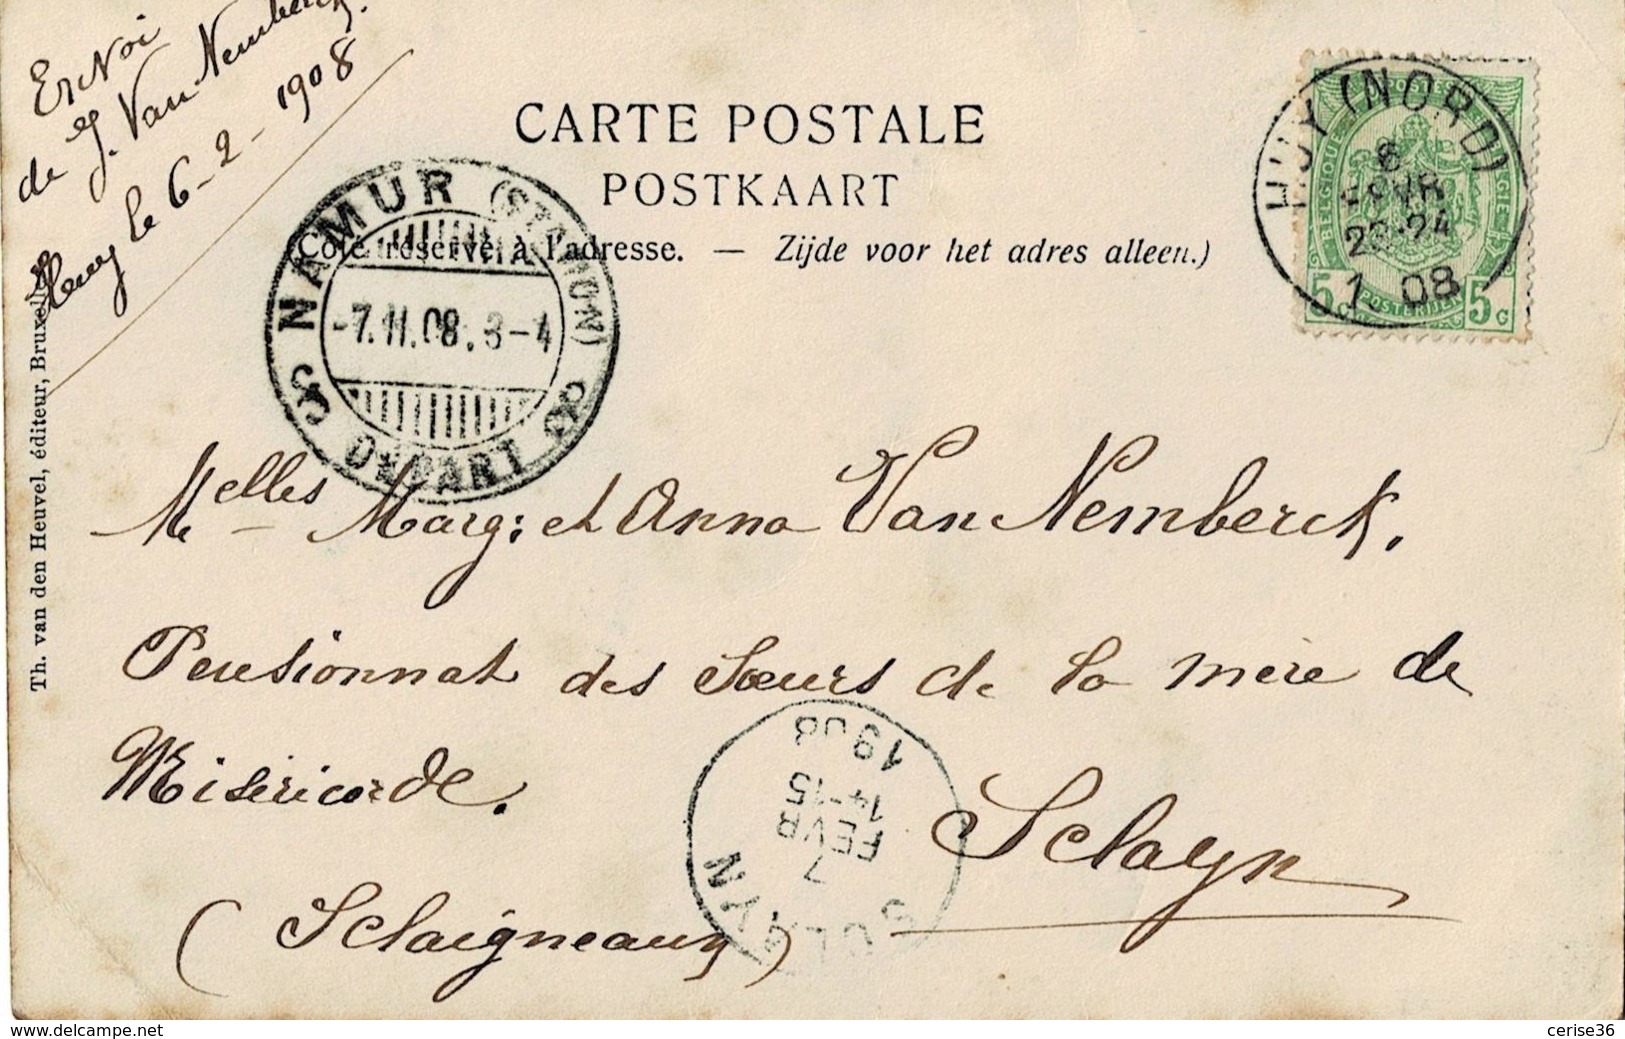 Envoi
de J. Van Nemberck.
Huy le 6-2-1908
CARTE POSTALE
POSTKAART
(Côté réservé à l'adresse. — Zijde voor het adres alleen.)
HUY (NORD)
6
FEVR
23-24
1908
BELGIQUE
BELGIE
POSTERIJEN
5c
5c
NAMUR (STATION)
-7.II.08. 3-4
DÉPART
Th. van den Heuvel, éditeur, Bruxelles
Melles Marg: et Anna Van Nemberck.
Pensionnat des Sœurs de la mère de
Miséricorde.
Sclayn
(Sclaigneaux)
SCLAYN
7
FEVR
14-15
1908
delcampe.net
cerise36